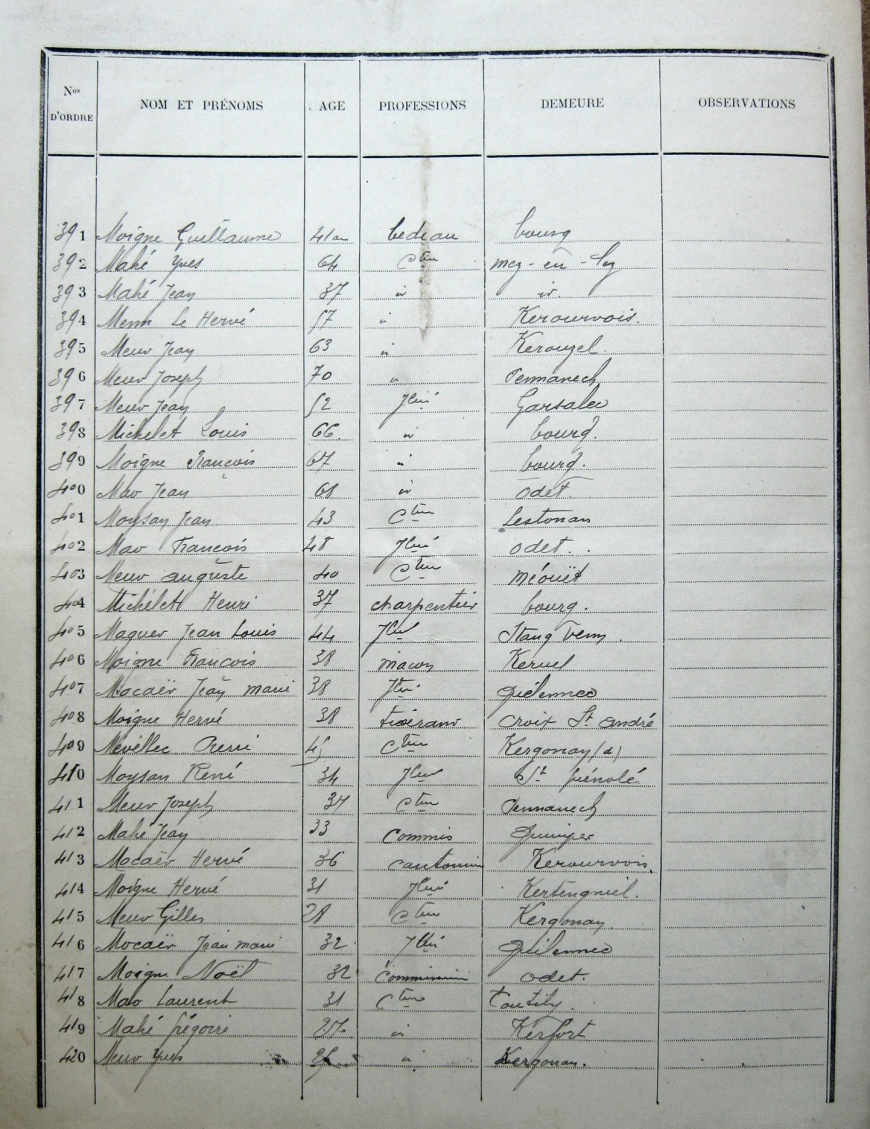 Nos D'ORDRE NOM ET PRÉNOMS AGE PROFESSIONS DEMEURE OBSERVATIONS
391 Moigne Guillaume 41 an bedeau bourg
392 Mahé Yves 64 Cteur mez-en-ley
393 Mahé Jean 37 id id.
394 Menn Le Hervé 57 id Kerourvois.
395 Meur Jean 63 id Kerouzel
396 Meur Joseph 70 id Pennanech
397 Meur Jean 52 Jlier Garsalec
398 Michelet Louis 66 id bourg.
399 Moigne François 67 id bourg.
400 Mao Jean 61 id odet
401 Moysan Jean 43 Cteur Lestonan
402 Mao François 48 Jlier odet.
403 Meur auguste 40 Cteur méouët
404 Michelet Henri 37 charpentier bourg.
405 Maguer Jean Louis 44 Jlier Stang Venn.
406 Moigne François 38 maçon Kernel
407 Mocaër Jean marie 38 Jlier quélennec
408 Moigne Hervé 38 tisserand croix St andré
409 Mévellec Pierre 45 Cteur Kergonay
410 Moysan René 34 Jlier St guénolé
411 Meur Joseph 34 Cteur Pennanech
412 Mahé Jean 33 Commis Quimper
413 Mocaër Hervé 36 cantonnier Kerourvois.
414 Moigne Hervé 31 Jlier
415 Meur Gilles 28 Cteur Kergonan.
416 Mocaër Jean marie 32 Jlier quélennec
417 Moigne Noël 32 odet.
418 Mao Laurent 31 Cteur
419 Mahé grégoire id Kerfort
420 Meur Yves id Kergonan.